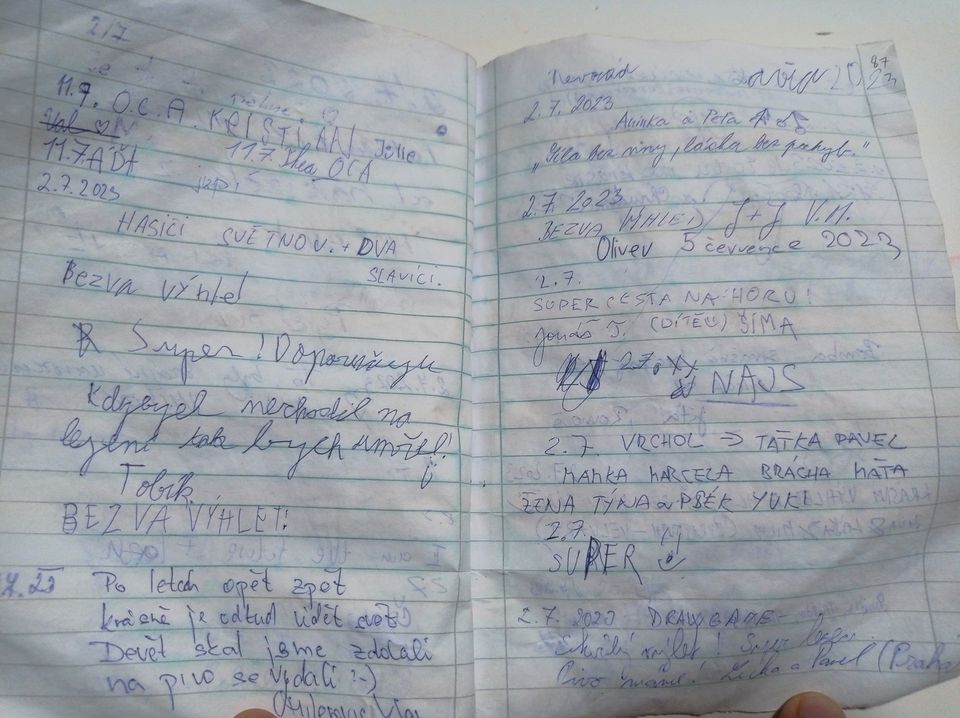 2/7
11.7. O.C.A. KRISTIÁN Julie
11.7. ÁĎA 11.7. OCA
2.7.2023
HASIČI SVĚTNOV. + DVA
SLAVÍCI.
Bezva výhled
Super! Doporučuju
Kdybych nechodil na
lezení tak bych umřel!
Tobík
BEZVA VÝHLET!
Po letech opět zpět
krásně je odtud vidět svět
Devět skal jsme zdolali
na pivo se vydali :-)
87
23
2.7. 2023
Aninka a Péťa
„Síla bez
2.7. 2023
BEZVA VÝHLED J+J V.M.
Oliver 5 července 2023
2.7.
SUPER CESTA NA HORU!
Jonáš T. ŠÍMA
2.7.
NAJS
2.7. VRCHOL ⇒ TAŤKA PAVEL
MAMKA MARCELA BRÁCHA MÁŤA
ŽENA TÝNA a PSEK YUKI
2.7.
SUPER
2.7. 2023 DRAWGAME
výlet! Super
Pivo máme! Lucka a Pavel (Praha